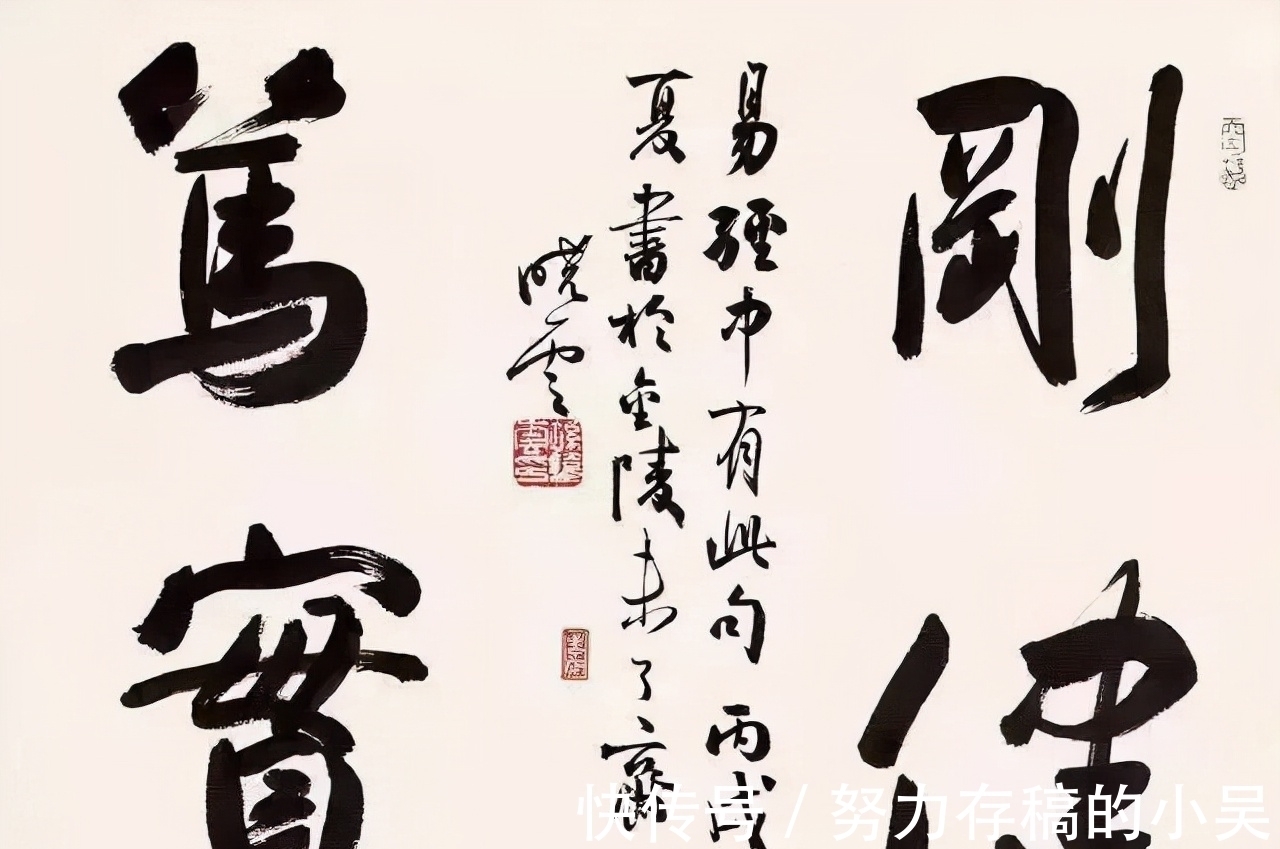 剛健
易經中有此句丙戌
夏書於金陵未了齋
曉雲
篤實
快传号 / 努力存稿的小吴